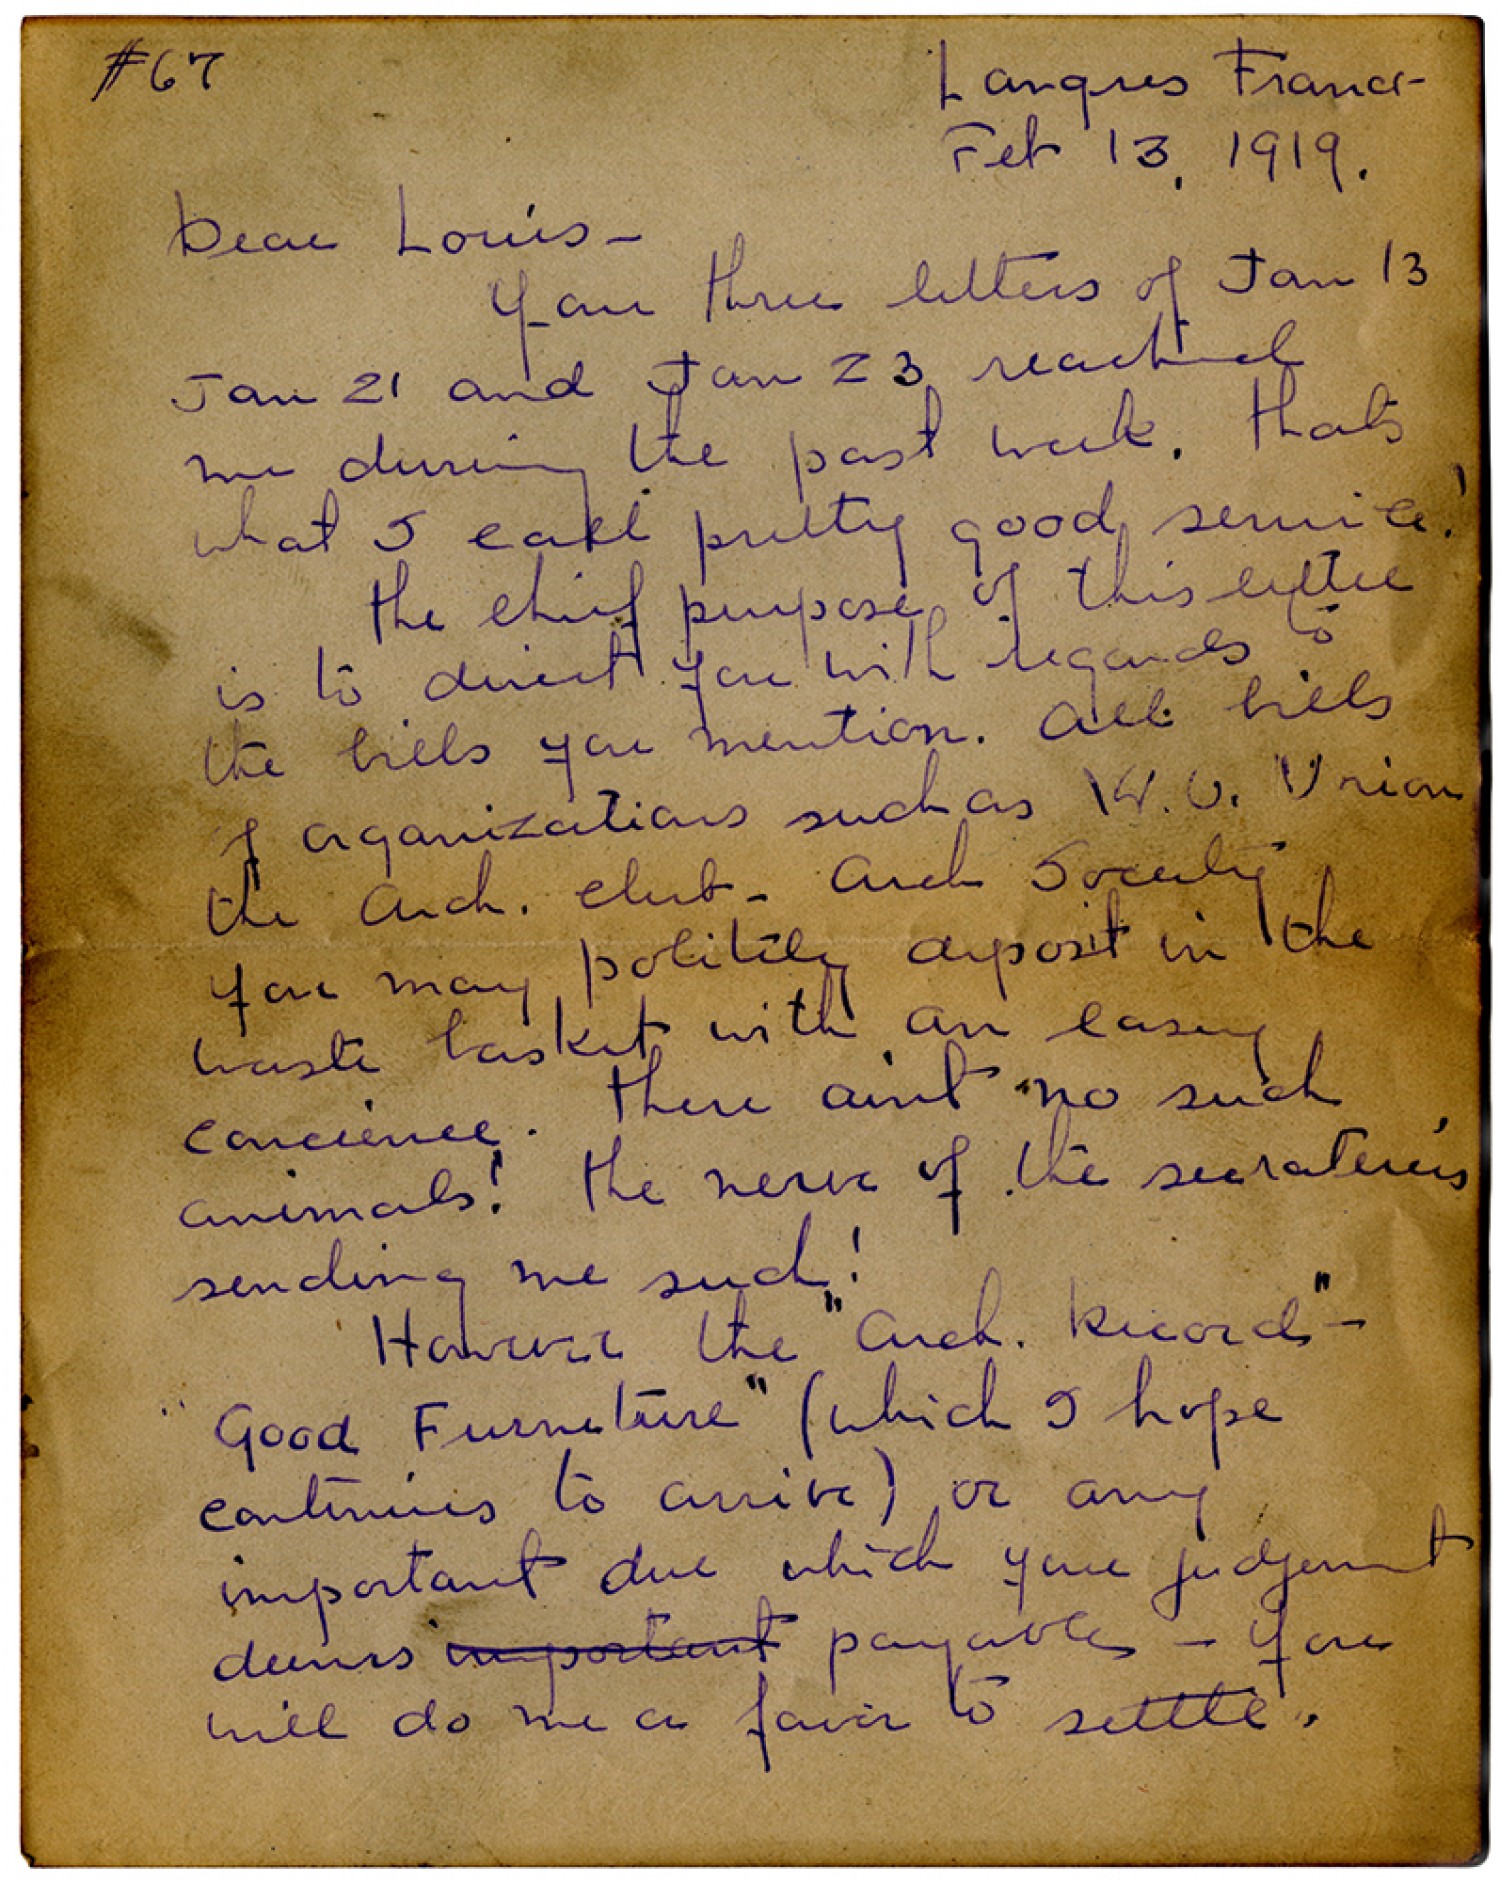 #67
Langres France
Feb 13, 1919.
Dear Louis –
Your three letters of Jan 13
Jan 21 and Jan 23 reached
me during the past week. Thats
what I call pretty good service!
The chief purpose of this letter
is to direct you with regards to
the bills you mention. All bills
of organizations such as W. U. Union
the Arch. Club – Arch Society
you may politely deposit in the
waste basket with an easy
concience. There aint no such
animals! The nerve of the
sending me such!
However the "Arch. Record" –
"Good Furniture" (which I hope
continues to arrive) or any
important due which your judgement
deems important payable – you
will do me a favor to settle.